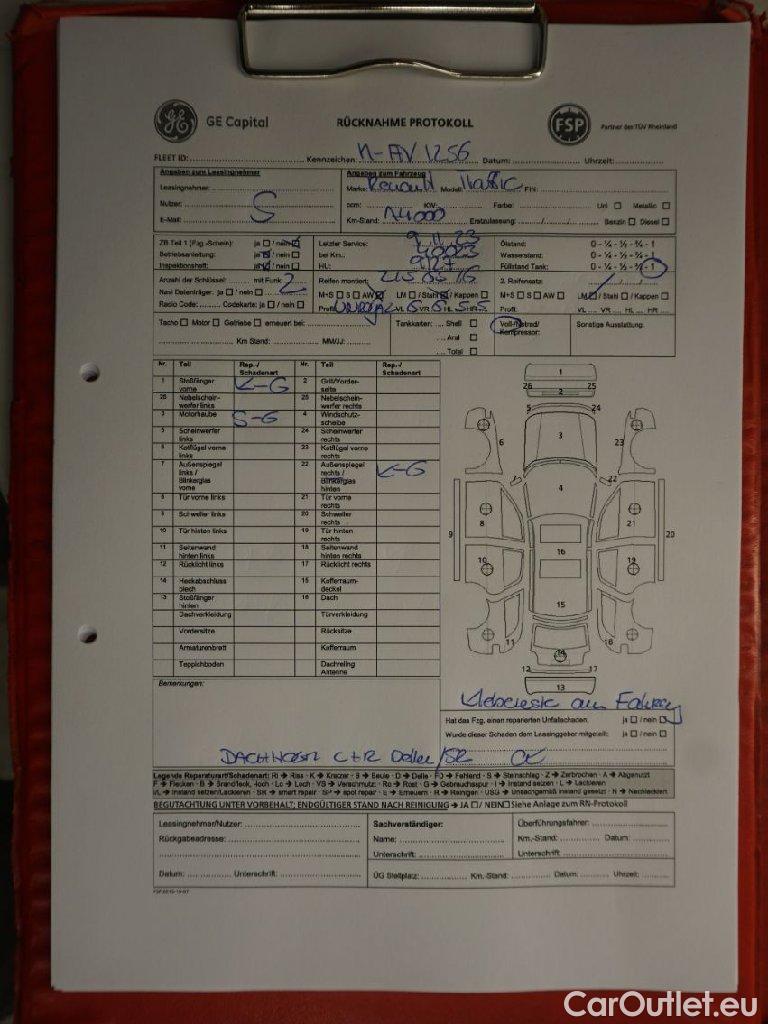 GE Capital
RÜCKNAHME PROTOKOLL
FSP
Partner des TÜV Rheinland
FLEET ID: Kennzeichen: N-AV 1256 Datum: Uhrzeit:
Angaben zum Leasingnehmer
Angaben zum Fahrzeug
Leasingnehmer:
Marke: Renault Modell: Trafic FIN:
Nutzer: S
ccm: KW: Farbe: Uni Metallic
E-Mail:
Km-Stand: Erstzulassung: Benzin Diesel
ZB Teil 1 (Fzg.-Schein): ja / nein
Letzter Service: 9.11.23
Ölstand: 0 - ¼ - ½ - ¾ - 1
Betriebsanleitung: ja / nein
bei Km.: 40023
Wasserstand: 0 - ¼ - ½ - ¾ - 1
Inspektionsheft: ja / nein
HU:
Füllstand Tank: 0 - ¼ - ½ - ¾ - 1
Anzahl der Schlüssel: mit Funk 2
Reifen montiert: 215 65 16
2. Reifensatz:
Navi Datenträger: ja / nein
M+S S AW LM / Stahl / Kappen
M+S S AW LM / Stahl / Kappen
Radio Code: Codekarte: ja / nein
Profil: VL 6 VR 6 HL 5 HR 5
Profil: VL VR HL HR
Tacho Motor Getriebe erneuert bei:
Tankkarten: Shell
Voll-/Notrad/
Kompressor:
Sonstige Ausstattung:
Aral
Km Stand: MM/JJ:
Total
Nr. Teil Rep.-/ Schadenart Nr. Teil Rep.-/ Schadenart
1 Stoßfänger vorne K-G 2 Grill/Vorderseite
26 Nebelscheinwerfer links 25 Nebelscheinwerfer rechts
3 Motorhaube S-G 4 Windschutzscheibe
5 Scheinwerfer links 24 Scheinwerfer rechts
6 Kotflügel vorne links 23 Kotflügel vorne rechts
7 Außenspiegel links / Blinkerglas vorne 22 Außenspiegel rechts / Blinkerglas hinten K-G
8 Tür vorne links 21 Tür vorne rechts
9 Schweller links 20 Schweller rechts
10 Tür hinten links 19 Tür hinten rechts
11 Seitenwand hinten links 18 Seitenwand hinten rechts
12 Rücklicht links 17 Rücklicht rechts
14 Heckabschlussblech 15 Kofferraumdeckel
13 Stoßfänger hinten 16 Dach
Dachverkleidung Türverkleidung
Vordersitze Rücksitze
Armaturenbrett Kofferraum
Teppichboden Dachreling Antenne
1
26 25
2
5 24
3
6 23
4
22
8 21
9 20
16
10 19
15
11 18
14
12 17
13
Bemerkungen:
Klebereste am Fahrzeug
Hat das Fzg. einen reparierten Unfallschaden: ja / nein
Wurde dieser Schaden dem Leasinggeber mitgeteilt: ja / nein
Legende Reparaturart/Schadenart: RI → Riss - K → Kratzer - B → Beule - D → Delle - FD → Fehlend - S → Steinschlag - Z → Zerbrochen - A → Abgenutzt
BEGUTACHTUNG UNTER VORBEHALT: ENDGÜLTIGER STAND NACH REINIGUNG → JA / NEIN Siehe Anlage zum RN-Protokoll
Leasingnehmer/Nutzer:
Sachverständiger:
Überführungsfahrer:
Rückgabeadresse:
Name:
Km.-Stand: Datum:
Unterschrift:
Unterschrift:
Datum: Unterschrift:
ÜG Stellplatz: Km.-Stand: Datum: Uhrzeit:
CarOutlet.eu